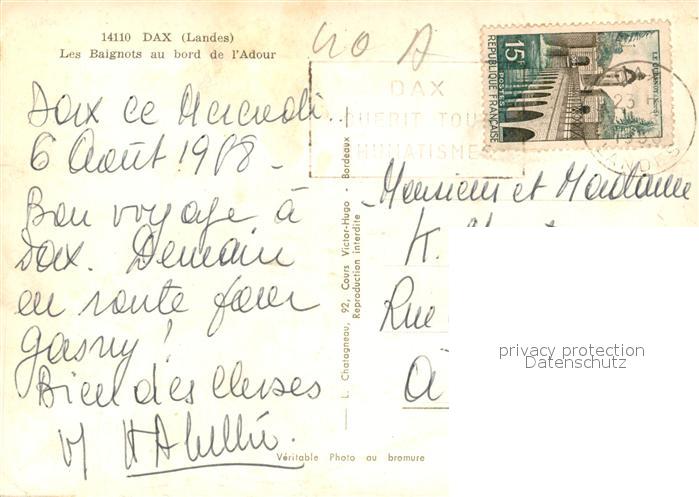 14110 DAX (Landes)
Les Baignots au bord de l'Adour
40 A
15F
LE QUESNOY
POSTES
REPUBLIQUE FRANÇAISE
DAX
GUERIT TOUS
RHUMATISMES
23
LANDES
Dax ce Mercredi
6 Août 1958 -
Bon voyage à
Dax. Demain
en route pour
Gasny!
Bien des choses
Monsieur et Madame
K.
Rue
à
L. Chatagneau, 92, Cours Victor-Hugo - Bordeaux
Reproduction interdite
Véritable Photo au bromure
privacy protection
Datenschutz